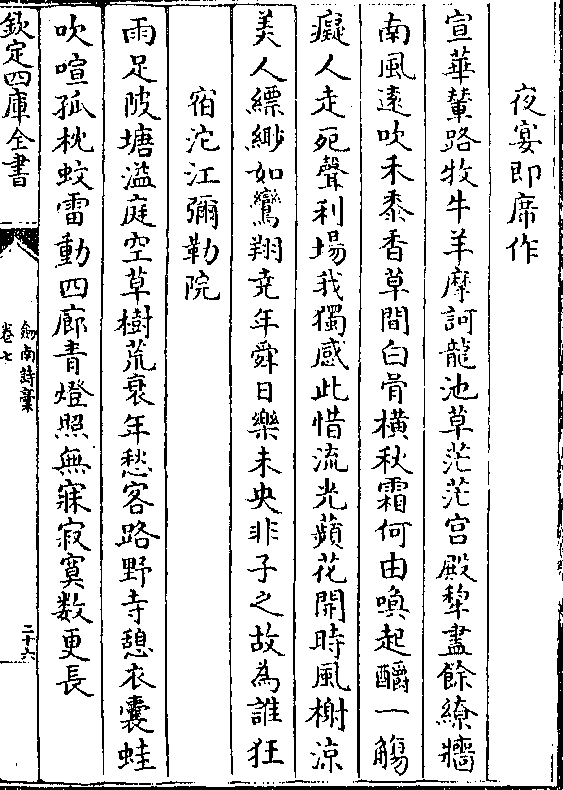 夜宴即席作
宣華輦路牧牛羊摩訶龍池草茫茫宮殿犂盡餘繚牆
南風遠吹禾黍香草間白骨橫秋霜何由喚起釂一觴
癡人走死聲利場我獨感此惜流光蘋花開時風榭涼
美人縹緲如鸞翔堯年舜日樂未央非子之故為誰狂
宿沱江彌勒院
雨足陂塘溢庭空草樹荒衰年愁客路野寺憩衣囊蛙
吹喧孤枕蚊雷動四廊青燈照無寐寂寞数更長
欽定四庫全書
劔南詩槀
卷七
二十六